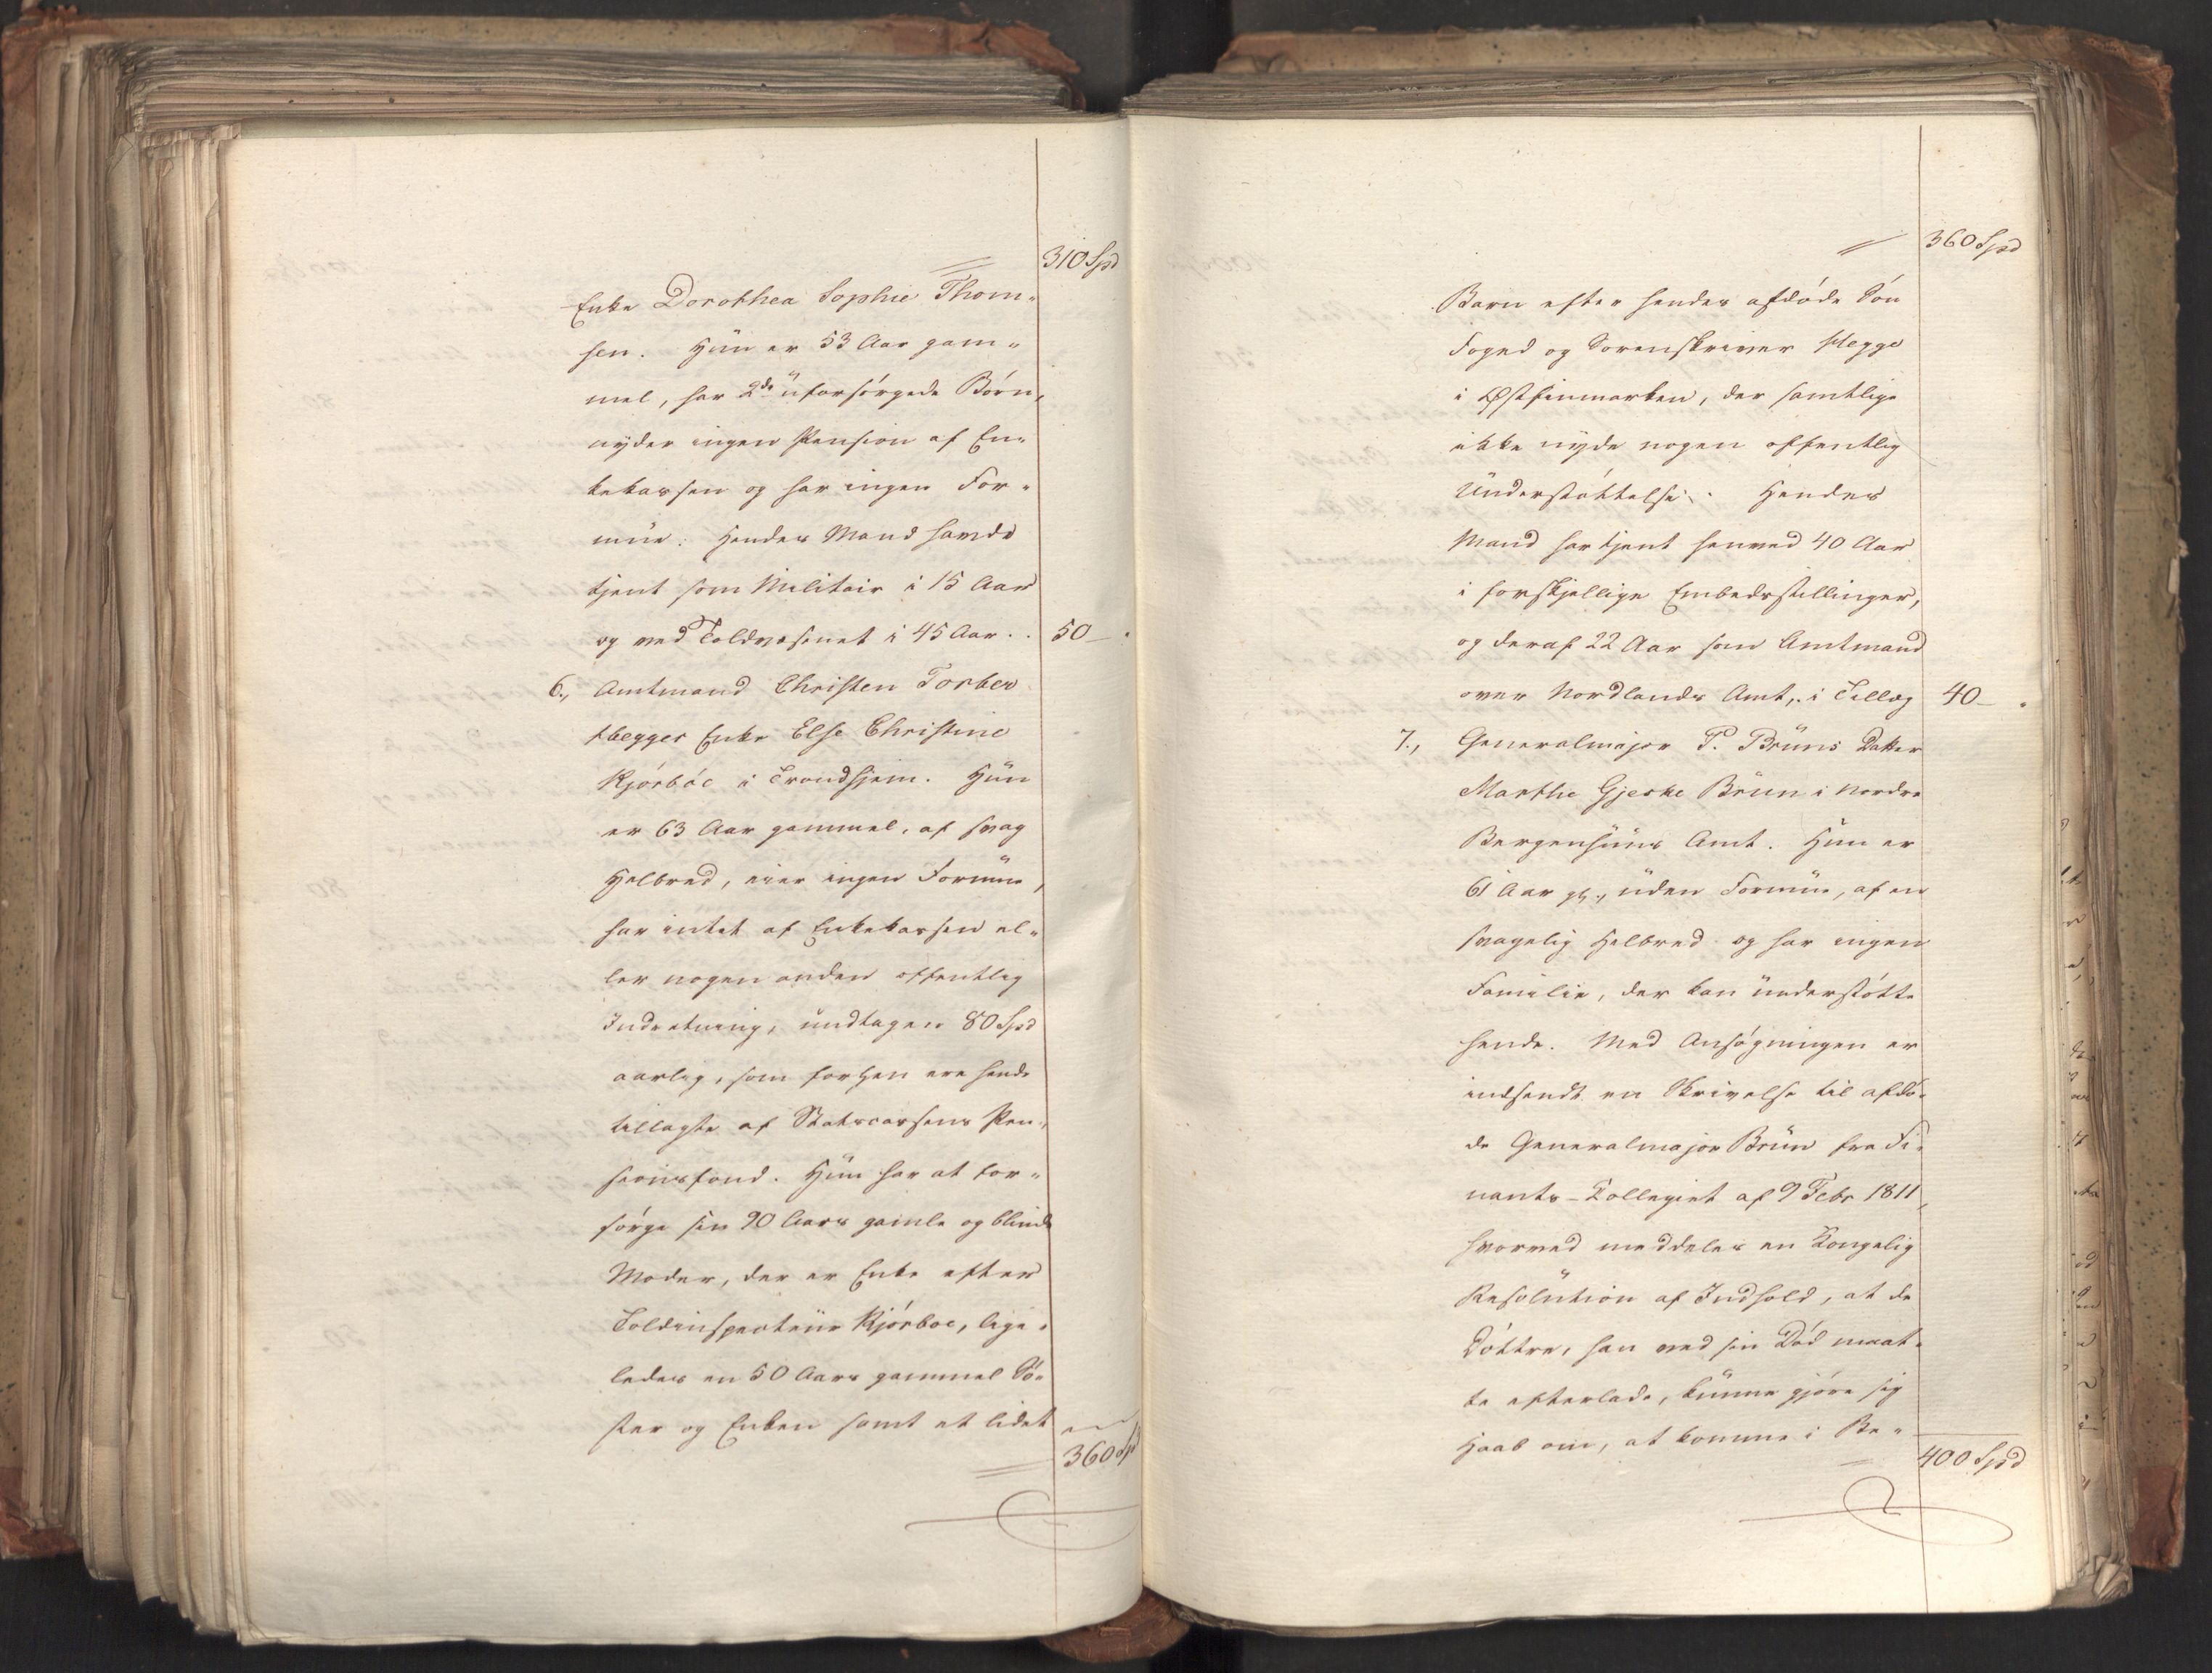 310 Spd
Enke Dorothea Sophie Thom-
sen. Hun er 53 Aar gam-
mel, har 2de uforsørgede Børn,
nyder ingen Pension af En-
kekassen og har ingen For-
mue. Hendes Mand havde
tjent som Militair i 15 Aar
og ved Toldvæsenet i 45 Aar . . 50 —
6., Amtmand Christen Torber
Hegges Enke Else Christine
Kjörböe i Trondhjem. Hun
er 63 Aar gammel, af svag
Helbred, eier ingen Formue,
har intet af Enkekassen el-
ler nogen anden offentlig
Indretning, undtagen 80 Spd
aarlig, som forhen ere hende
tillagte af Statscassens Pen-
sionsfond. Hun har at for-
sørge sin 90 Aars gamle og blinde
Moder, der er Enke efter
Toldinspecteur Kjörboe, lige-
ledes en 50 Aars gammel Sö-
ster og Enken samt et lidet
360 Spd
360 Spd
Barn efter hendes afdøde Søn
Foged og Sorenskriver Hegge
i Østfinmarken, der samtlige
ikke nyde nogen offentlig
Understøttelse. Hendes
Mand har tjent henved 40 Aar
i forskjellige Embedsstillinger,
og deraf 22 Aar som Amtmand
over Nordlands Amt, i Tillæg 40 —
7., Generalmajor P. Brüns Datter
Marthe Gjeske Brün i Nordre
Bergenhuus Amt. Hun er
61 Aar gl., uden Formue, af en
svagelig Helbred og har ingen
Familie, der kan understøtte
hende. Med Ansøgningen er
indsendt en Skrivelse til afdø-
de Generalmajor Brün fra Fi-
nants-Collegiet af 9 Febr 1811,
hvorved meddeles en Kongelig
Resolution af Indhold, at de
Døttre, han ved sin Død maat-
te efterlade, kunne gjøre sig
Haab om, at komme i Be-
400 Spd